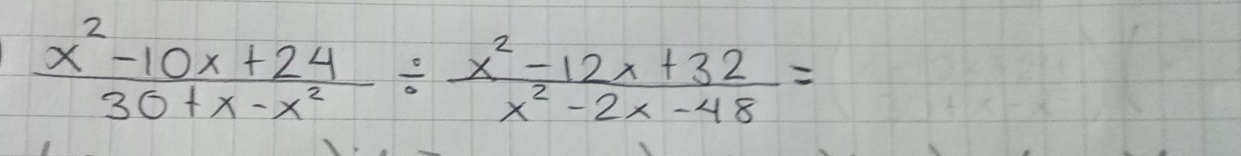 x² - 10x + 24 / 30 + x - x² ÷ x² - 12x + 32 / x² - 2x - 48 =